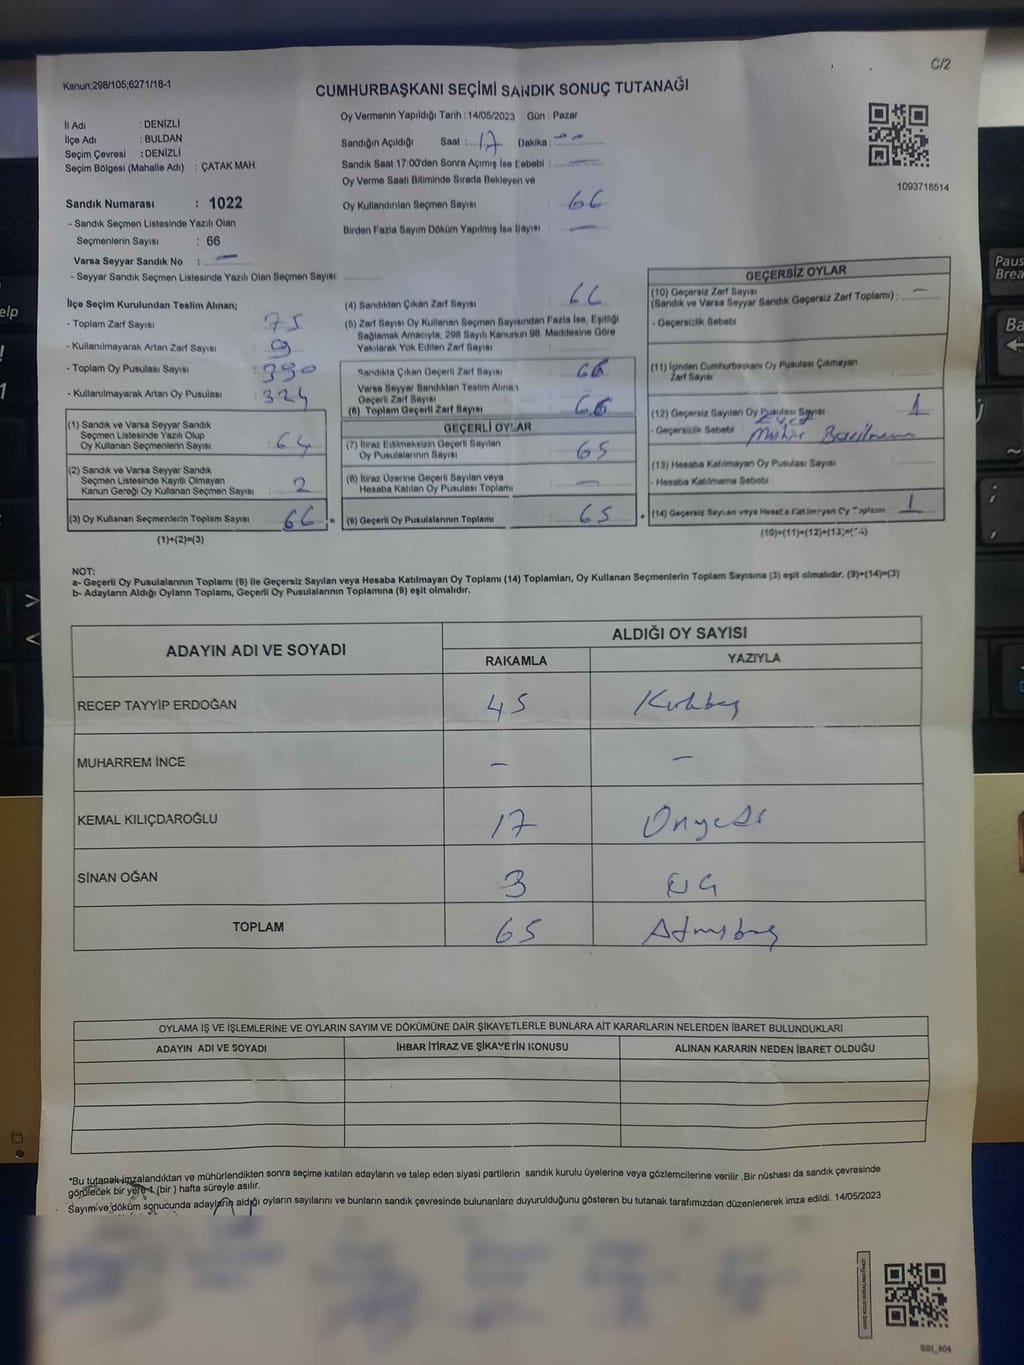 C/2
Kanun;298/105;6271/18-1
CUMHURBAŞKANI SEÇİMİ SANDIK SONUÇ TUTANAĞI
İl Adı : DENİZLİ
İlçe Adı : BULDAN
Seçim Çevresi : DENİZLİ
Seçim Bölgesi (Mahalle Adı) : ÇATAK MAH.
Sandık Numarası : 1022
- Sandık Seçmen Listesinde Yazılı Olan
Seçmenlerin Sayısı : 66
Varsa Seyyar Sandık No : —
- Seyyar Sandık Seçmen Listesinde Yazılı Olan Seçmen Sayısı
Oy Vermenin Yapıldığı Tarih : 14/05/2023 Gün : Pazar
Sandığın Açıldığı Saat : 17 Dakika :
Sandık Saat 17:00'den Sonra Açımış İse Sebebi : —
Oy Verme Saati Bitiminde Sırada Bekleyen ve
Oy Kullandırılan Seçmen Sayısı : 66
Birden Fazla Sayım Döküm Yapılmış İse Sayısı : —
1093718514
İlçe Seçim Kurulundan Teslim Alınan;
- Toplam Zarf Sayısı : 75
- Kullanılmayarak Artan Zarf Sayısı : 9
- Toplam Oy Pusulası Sayısı : 390
- Kullanılmayarak Artan Oy Pusulası : 324
(1) Sandık ve Varsa Seyyar Sandık
Seçmen Listesinde Yazılı Olup
Oy Kullanan Seçmenlerin Sayısı : 64
(2) Sandık ve Varsa Seyyar Sandık
Seçmen Listesinde Kayıtlı Olmayan
Kanun Gereği Oy Kullanan Seçmen Sayısı : 2
(3) Oy Kullanan Seçmenlerin Toplam Sayısı : 66
(1)+(2)=(3)
(4) Sandıktan Çıkan Zarf Sayısı : 66
(5) Zarf Sayısı Oy Kullanan Seçmen Sayısından Fazla İse, Eşitliği
Sağlamak Amacıyla, 298 Sayılı Kanunun 98. Maddesine Göre
Yakılarak Yok Edilen Zarf Sayısı :
Sandıkta Çıkan Geçerli Zarf Sayısı : 66
Varsa Seyyar Sandıktan Teslim Alınan
Geçerli Zarf Sayısı :
(6) Toplam Geçerli Zarf Sayısı : 66
GEÇERLİ OYLAR
(7) İtiraz Edilmeksizin Geçerli Sayılan
Oy Pusulalarının Sayısı : 65
(8) İtiraz Üzerine Geçerli Sayılan veya
Hesaba Katılan Oy Pusulası Toplamı : —
(9) Geçerli Oy Pusulalarının Toplamı : 65
GEÇERSİZ OYLAR
(10) Geçersiz Zarf Sayısı
(Sandık ve Varsa Seyyar Sandık Geçersiz Zarf Toplamı) : —
- Geçersizlik Sebebi :
(11) İçinden Cumhurbaşkanı Oy Pusulası Çıkmayan
Zarf Sayısı :
(12) Geçersiz Sayılan Oy Pusulası Sayısı : 1
- Geçersizlik Sebebi : Evet
Mühür Basılmamı
(13) Hesaba Katılmayan Oy Pusulası Sayısı :
- Hesaba Katılmama Sebebi :
(14) Geçersiz Sayılan veya Hesaba Katılmayan Oy Toplamı : 1
(10)+(11)+(12)+(13)=(14)
NOT:
a- Geçerli Oy Pusulalarının Toplamı (9) ile Geçersiz Sayılan veya Hesaba Katılmayan Oy Toplamı (14) Toplamları, Oy Kullanan Seçmenlerin Toplam Sayısına (3) eşit olmalıdır. (9)+(14)=(3)
b- Adayların Aldığı Oyların Toplamı, Geçerli Oy Pusulalarının Toplamına (9) eşit olmalıdır.
ADAYIN ADI VE SOYADI ALDIĞI OY SAYISI
RAKAMLA YAZIYLA
RECEP TAYYİP ERDOĞAN 45 Kırkbeş
MUHARREM İNCE — —
KEMAL KILIÇDAROĞLU 17 Onyedi
SİNAN OĞAN 3 ÜÇ
TOPLAM 65 Atmışbeş
OYLAMA İŞ VE İŞLEMLERİNE VE OYLARIN SAYIM VE DÖKÜMÜNE DAİR ŞİKAYETLERLE BUNLARA AİT KARARLARIN NELERDEN İBARET BULUNDUKLARI
ADAYIN ADI VE SOYADI İHBAR İTİRAZ VE ŞİKAYETİN KONUSU ALINAN KARARIN NEDEN İBARET OLDUĞU
*Bu tutanak imzalandıktan ve mühürlendikten sonra seçime katılan adayların ve talep eden siyasi partilerin sandık kurulu üyelerine veya gözlemcilerine verilir .Bir nüshası da sandık çevresinde
görülecek bir yere 1 (bir ) hafta süreyle asılır.
Sayım ve döküm sonucunda adayların aldığı oyların sayılarını ve bunların sandık çevresinde bulunanlara duyurulduğunu gösteren bu tutanak tarafımızdan düzenlenerek imza edildi. 14/05/2023